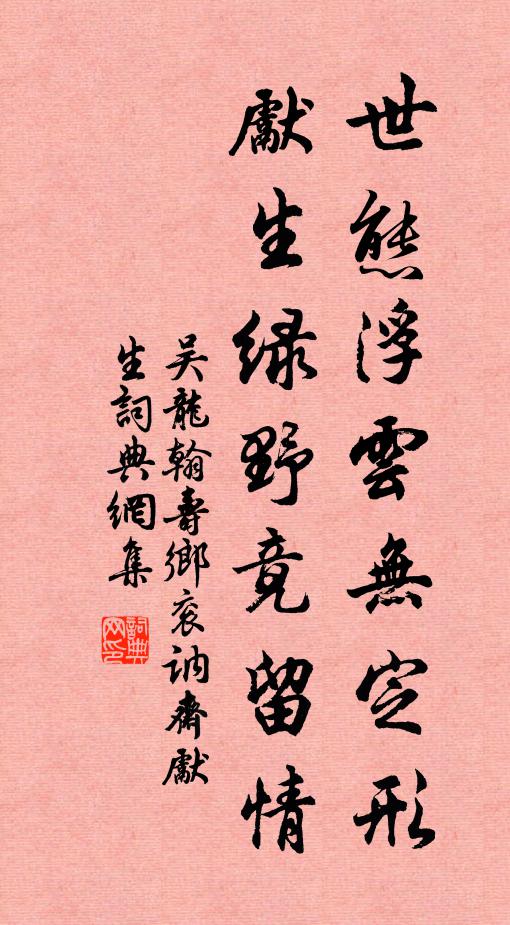 世態浮雲無定形
獻生緑野竟留情
吴龍翰壽鄉衮訥齋獻
生詞典網集
詞典网印